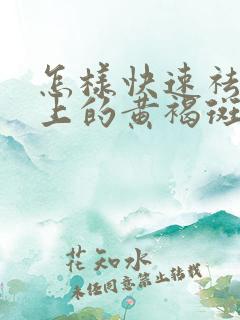 怎样快速祛
上的黄褐斑
花知水
未经同意禁止转载